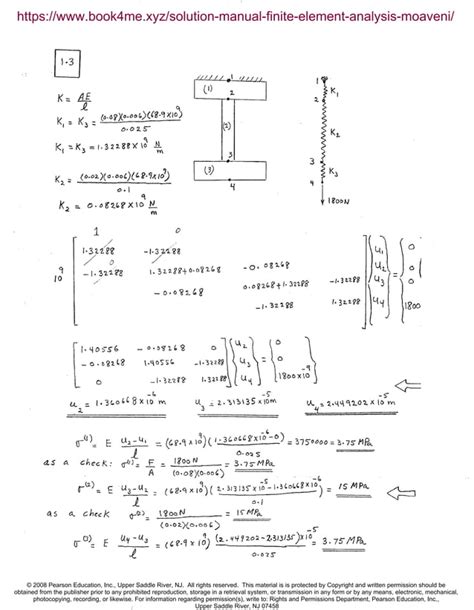 https://www.book4me.xyz/solution-manual-finite-element-analysis-moaveni/
1-3
K = AE/l
K₁ = K₃ = (0.08)(0.006)(68.9×10⁹)/0.025
K₁ = K₃ = 1.32288×10⁹ N/m
K₂ = (0.02)(0.006)(68.9×10⁹)/0.1
K₂ = 0.08268×10⁹ N/m
1
(1)
2
(2)
3
(3)
4
1
K₁
2
K₂
3
K₃
4
1800N
1 0
1.32288 -1.32288 u₁ 0
10⁹ 0 -1.32288 1.32288+0.08268 -0.08268 u₂ = 0
-0.08268 0.08268+1.32288 -1.32288 u₃ 0
-1.32288 1.32288 u₄ 1800
1.40556 -0.08268 0 u₂ 0
-0.08268 1.40556 -1.32288 u₃ = 0
0 -1.32288 1.32288 u₄ 1800×10⁻⁹
u₂ = 1.360668×10⁻⁶ m u₃ = 2.313135×10⁻⁵ m u₄ = 2.449202×10⁻⁵ m
σ⁽¹⁾ = E (u₂-u₁)/l = (68.9×10⁹)(1.360668×10⁻⁶-0)/0.025 = 3750000 = 3.75 MPa
as a check: σ⁽¹⁾ = F/A = 1800N/(0.08)(0.006) = 3.75 MPa
σ⁽²⁾ = E (u₃-u₂)/l = (68.9×10⁹)(2.313135×10⁻⁵-1.360668×10⁻⁶)/0.1 = 15 MPa
as a check σ⁽²⁾ = 1800N/(0.02)(0.006) = 15 MPa
σ⁽³⁾ = E (u₄-u₃)/l = (68.9×10⁹)(2.449202-2.313135)×10⁻⁵/0.025 = 3.75 MPa
© 2008 Pearson Education, Inc., Upper Saddle River, NJ. All rights reserved. This material is protected by Copyright and written permission should be
obtained from the publisher prior to any prohibited reproduction, storage in a retrieval system, or transmission in any form or by any means, electronic, mechanical,
photocopying, recording, or likewise. For information regarding permission(s), write to: Rights and Permissions Department, Pearson Education, Inc.,
Upper Saddle River, NJ 07458